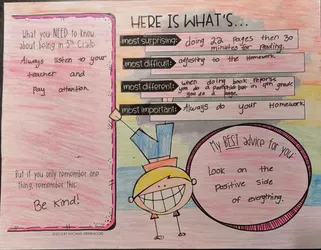 HERE IS WHAT'S...
What you NEED to know
about being in 5th Grade:
Always listen to your
teacher and
Pay attention
But if you only remember one
thing, remember this:
Be Kind!
most surprising:
doing 22 pages then 30
minutes for reading.
most difficult:
adjusting to the homework
most different:
when doing book reports
you do a
in 4th grade
most important:
Always do your homework
My BEST advice for you:
Look on the
positive side
of everything.